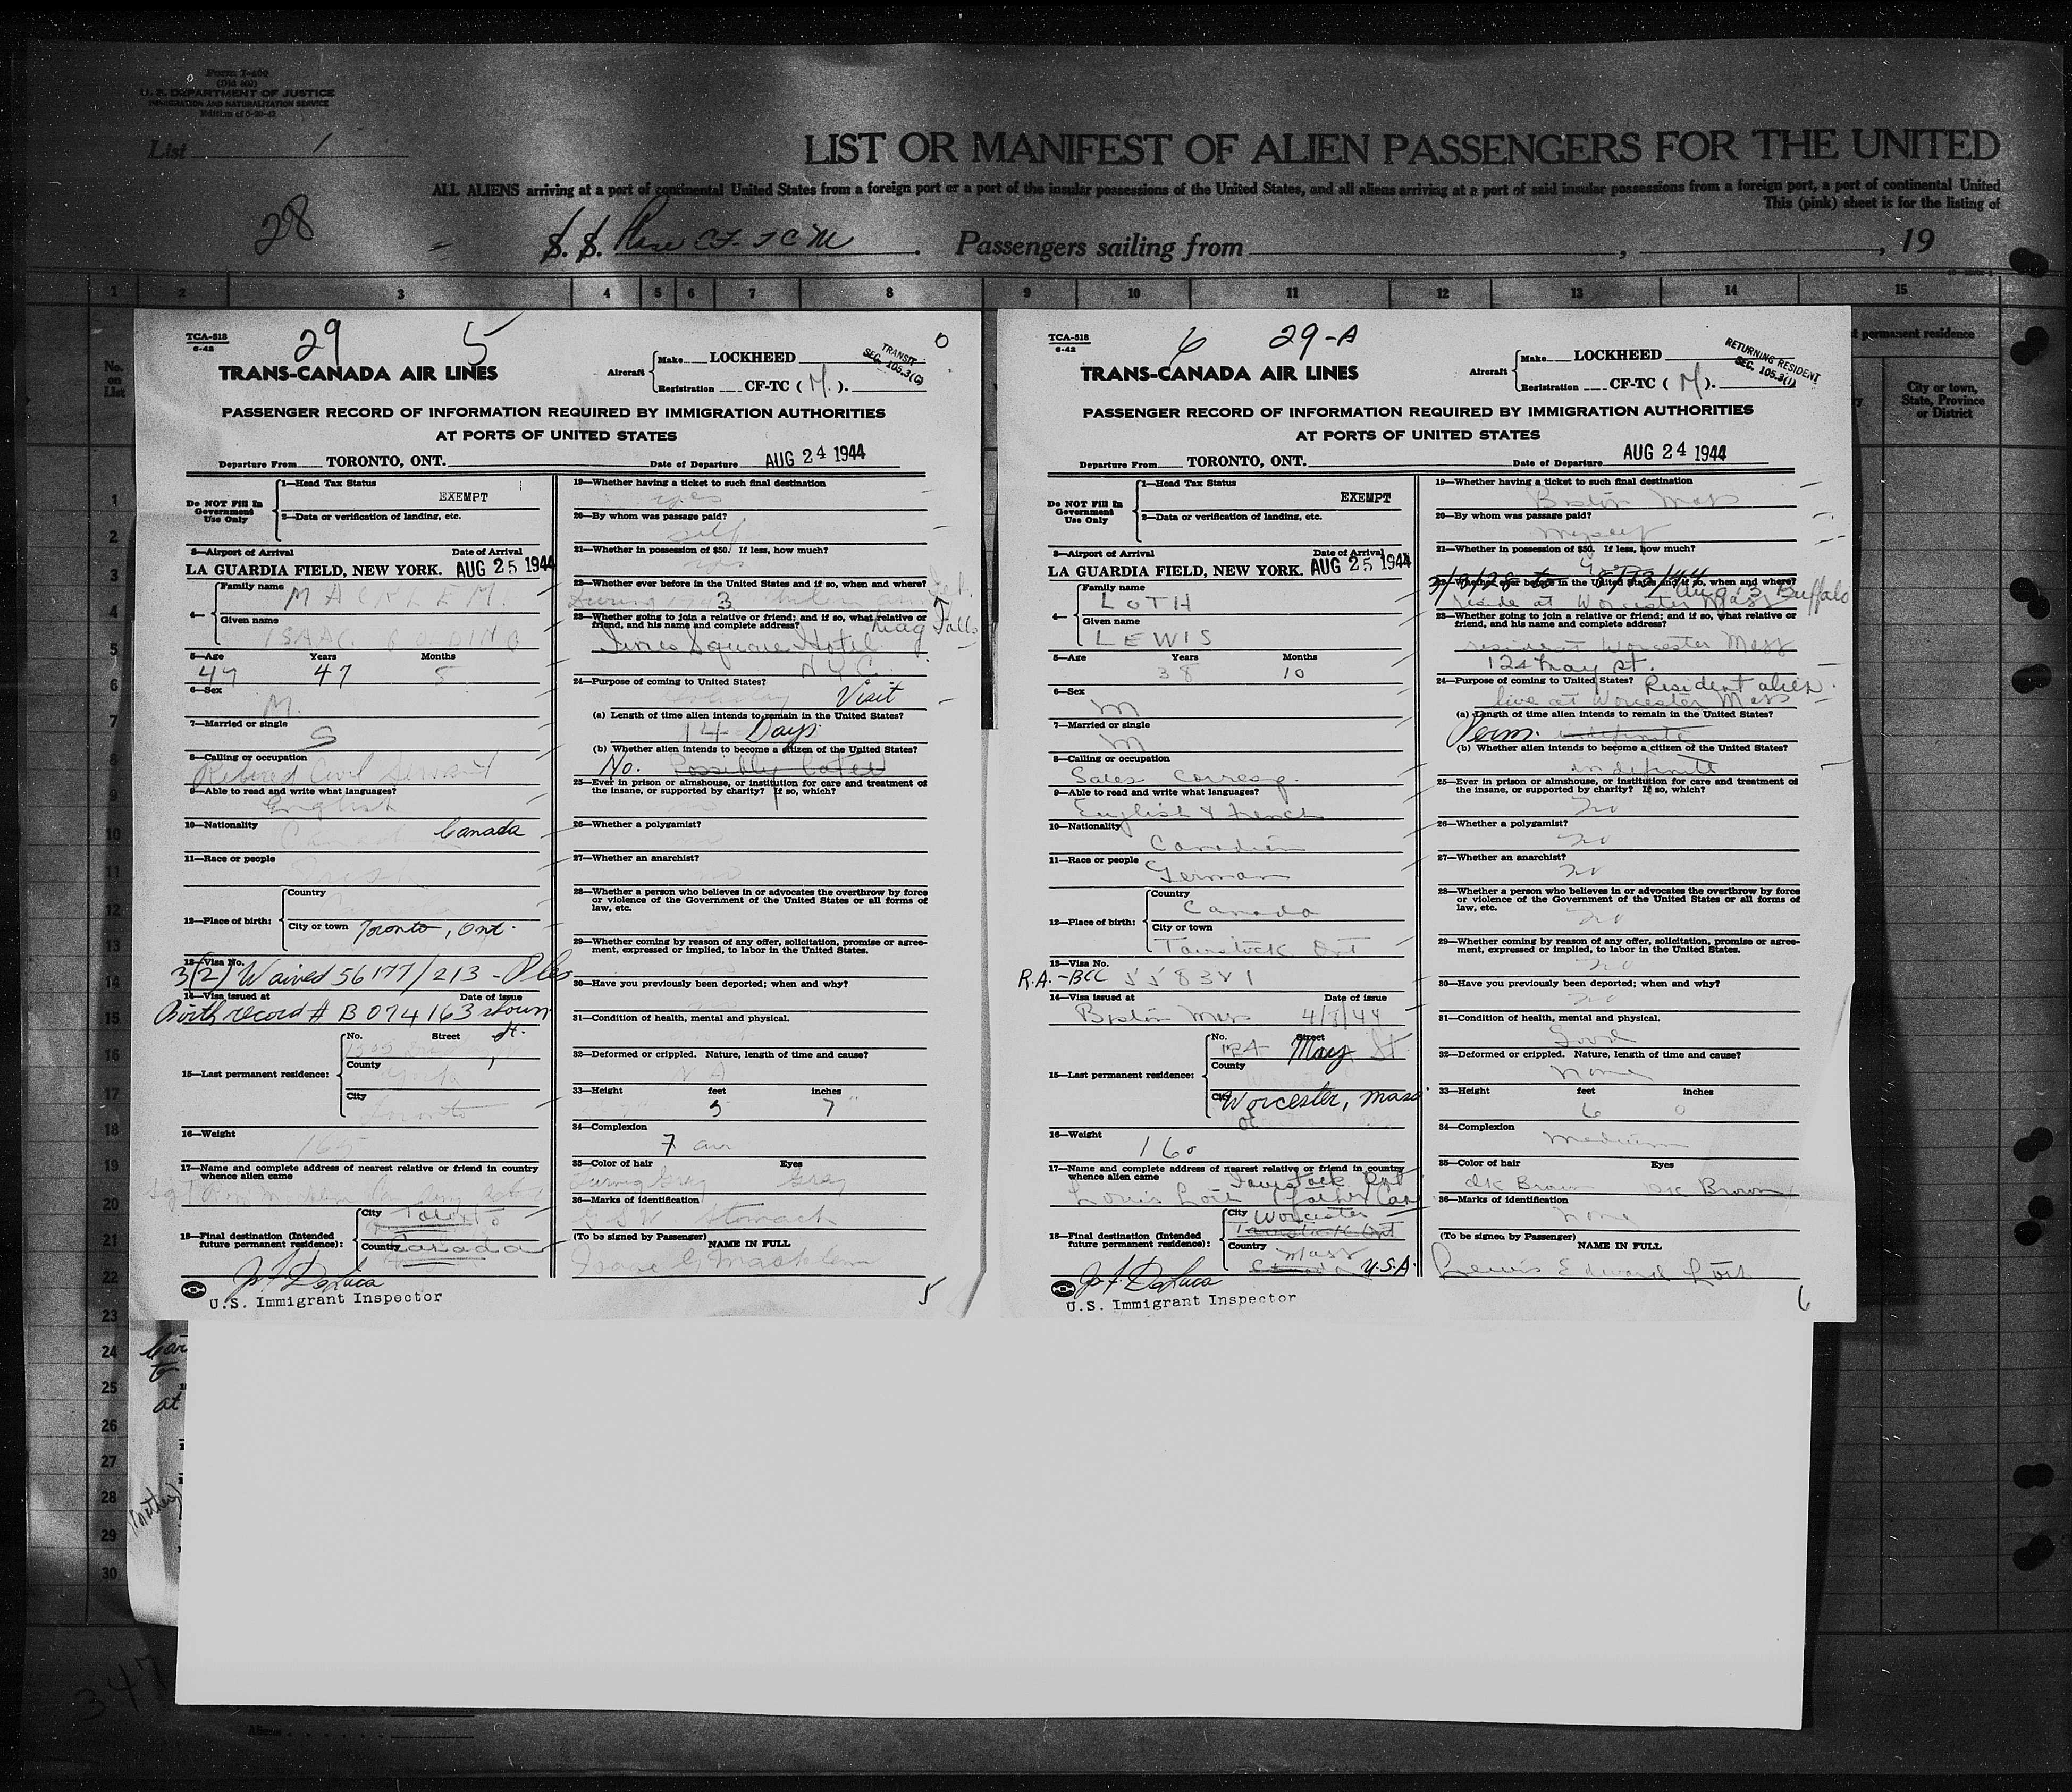 Form I-400
(Old 500)
U. S. DEPARTMENT OF JUSTICE
IMMIGRATION AND NATURALIZATION SERVICE
List 1
LIST OR MANIFEST OF ALIEN PASSENGERS FOR THE UNITED
ALL ALIENS arriving at a port of continental United States from a foreign port or a port of the insular possessions of the United States, and all aliens arriving at a port of said insular possessions from a foreign port, a port of continental United
This (pink) sheet is for the listing of
28
S. S. Plane CF-TCM. Passengers sailing from , , 19
1 2 3 4 5 6 7 8 9 10 11 12 13 14 15
t permanent residence
No. on List
City or town, State, Province or District
TCA-518
6-42
29 5 0
TRANS-CANADA AIR LINES
Aircraft Make LOCKHEED
Registration CF-TC ( M ).
TRANSIT
SEC. 105.3(C)
PASSENGER RECORD OF INFORMATION REQUIRED BY IMMIGRATION AUTHORITIES
AT PORTS OF UNITED STATES
Departure From TORONTO, ONT. Date of Departure AUG 24 1944
Do NOT Fill In Government Use Only
1—Head Tax Status
EXEMPT
2—Data or verification of landing, etc.
3—Airport of Arrival Date of Arrival
LA GUARDIA FIELD, NEW YORK. AUG 25 1944
4— Family name
MACKLEM
Given name
ISAAC
5—Age Years Months
47 47 5
6—Sex
M.
7—Married or single
S
8—Calling or occupation
Retired Civil Servant
9—Able to read and write what languages?
English
10—Nationality
Canada Canada
11—Race or people
Irish
12—Place of birth: Country
City or town Toronto, Ont.
13—Visa No.
3(2) Waived 56177/213 -
14—Visa issued at Date of issue
Birth record # B 074163 shown
15—Last permanent residence: No. Street
County
York
City
Toronto
16—Weight
165
17—Name and complete address of nearest relative or friend in country whence alien came
18—Final destination (Intended future permanent residence): City Toronto
Country Canada
U.S. Immigrant Inspector
19—Whether having a ticket to such final destination
yes
20—By whom was passage paid?
self
21—Whether in possession of $50. If less, how much?
yes
22—Whether ever before in the United States and if so, when and where?
During
23—Whether going to join a relative or friend; and if so, what relative or friend, and his name and complete address?
Niag Falls
Times Square Hotel
N.Y.C.
24—Purpose of coming to United States?
Visit
(a) Length of time alien intends to remain in the United States?
14 Days
(b) Whether alien intends to become a citizen of the United States?
No. Possibly Later
25—Ever in prison or almshouse, or institution for care and treatment of the insane, or supported by charity? If so, which?
26—Whether a polygamist?
no
27—Whether an anarchist?
no
28—Whether a person who believes in or advocates the overthrow by force or violence of the Government of the United States or all forms of law, etc.
29—Whether coming by reason of any offer, solicitation, promise or agreement, expressed or implied, to labor in the United States.
no
30—Have you previously been deported; when and why?
no
31—Condition of health, mental and physical.
32—Deformed or crippled. Nature, length of time and cause?
NA
33—Height feet inches
5 7
34—Complexion
35—Color of hair Eyes
Turning Grey Grey
36—Marks of identification
G S W. Stomach
(To be signed by Passenger) NAME IN FULL
Isaac G Macklem
5
TCA-518
6-42
6 29-A
TRANS-CANADA AIR LINES
Aircraft Make LOCKHEED
Registration CF-TC ( M ).
RETURNING RESIDENT
SEC. 105.3(1)
PASSENGER RECORD OF INFORMATION REQUIRED BY IMMIGRATION AUTHORITIES
AT PORTS OF UNITED STATES
Departure From TORONTO, ONT. Date of Departure AUG 24 1944
Do NOT Fill In Government Use Only
1—Head Tax Status
EXEMPT
2—Data or verification of landing, etc.
3—Airport of Arrival Date of Arrival
LA GUARDIA FIELD, NEW YORK. AUG 25 1944
4— Family name
LOTH
Given name
LEWIS
5—Age Years Months
38 10
6—Sex
M
7—Married or single
M
8—Calling or occupation
Sales Corresp.
9—Able to read and write what languages?
English & French
10—Nationality
Canadian
11—Race or people
German
12—Place of birth: Country
Canada
City or town
Tavistock Ont
13—Visa No.
R.A.-BCC 558381
14—Visa issued at Date of issue
Boston Mass 4/8/44
15—Last permanent residence: No. Street
124 May St
County
City
Worcester, Mass
16—Weight
160
17—Name and complete address of nearest relative or friend in country whence alien came
Tavistock Ont
Louis Loth (father Can
18—Final destination (Intended future permanent residence): City Worcester
Tavistock Ont
Country Mass
Canada U.S.A.
U.S. Immigrant Inspector
19—Whether having a ticket to such final destination
Boston Mass
20—By whom was passage paid?
Myself
21—Whether in possession of $50. If less, how much?
Yes
22—Whether ever before in the United States and if so, when and where?
Buffalo
reside at Worcester Mass
23—Whether going to join a relative or friend; and if so, what relative or friend, and his name and complete address?
resident Worcester Mass
124 May St.
24—Purpose of coming to United States? Resident alien.
live at Worcester Mass
(a) Length of time alien intends to remain in the United States?
Perm. indefinite
(b) Whether alien intends to become a citizen of the United States?
indefinite
25—Ever in prison or almshouse, or institution for care and treatment of the insane, or supported by charity? If so, which?
no
26—Whether a polygamist?
no
27—Whether an anarchist?
no
28—Whether a person who believes in or advocates the overthrow by force or violence of the Government of the United States or all forms of law, etc.
no
29—Whether coming by reason of any offer, solicitation, promise or agreement, expressed or implied, to labor in the United States.
no
30—Have you previously been deported; when and why?
no
31—Condition of health, mental and physical.
Good
32—Deformed or crippled. Nature, length of time and cause?
none
33—Height feet inches
6 0
34—Complexion
medium
35—Color of hair Eyes
dk Brown dk Brown
36—Marks of identification
none
(To be signed by Passenger) NAME IN FULL
Lewis Edward Loth
6
1
2
3
4
5
6
7
8
9
10
11
12
13
14
15
16
17
18
19
20
21
22
23
24
25
26
27
28
29
30
to
at
347
Aliens